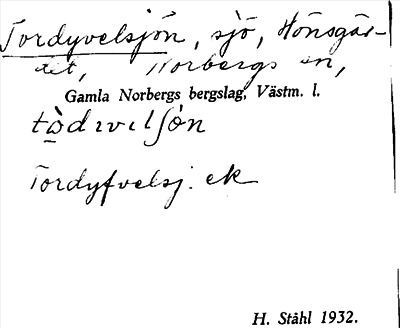 Tordyvelsjön, sjö, Hönsgär-
det, Norbergs sn,
Gamla Norbergs bergslag, Västm. l.
tòdɩvɩlʃön
Tordyfvelsj. ek
H. Ståhl 1932.